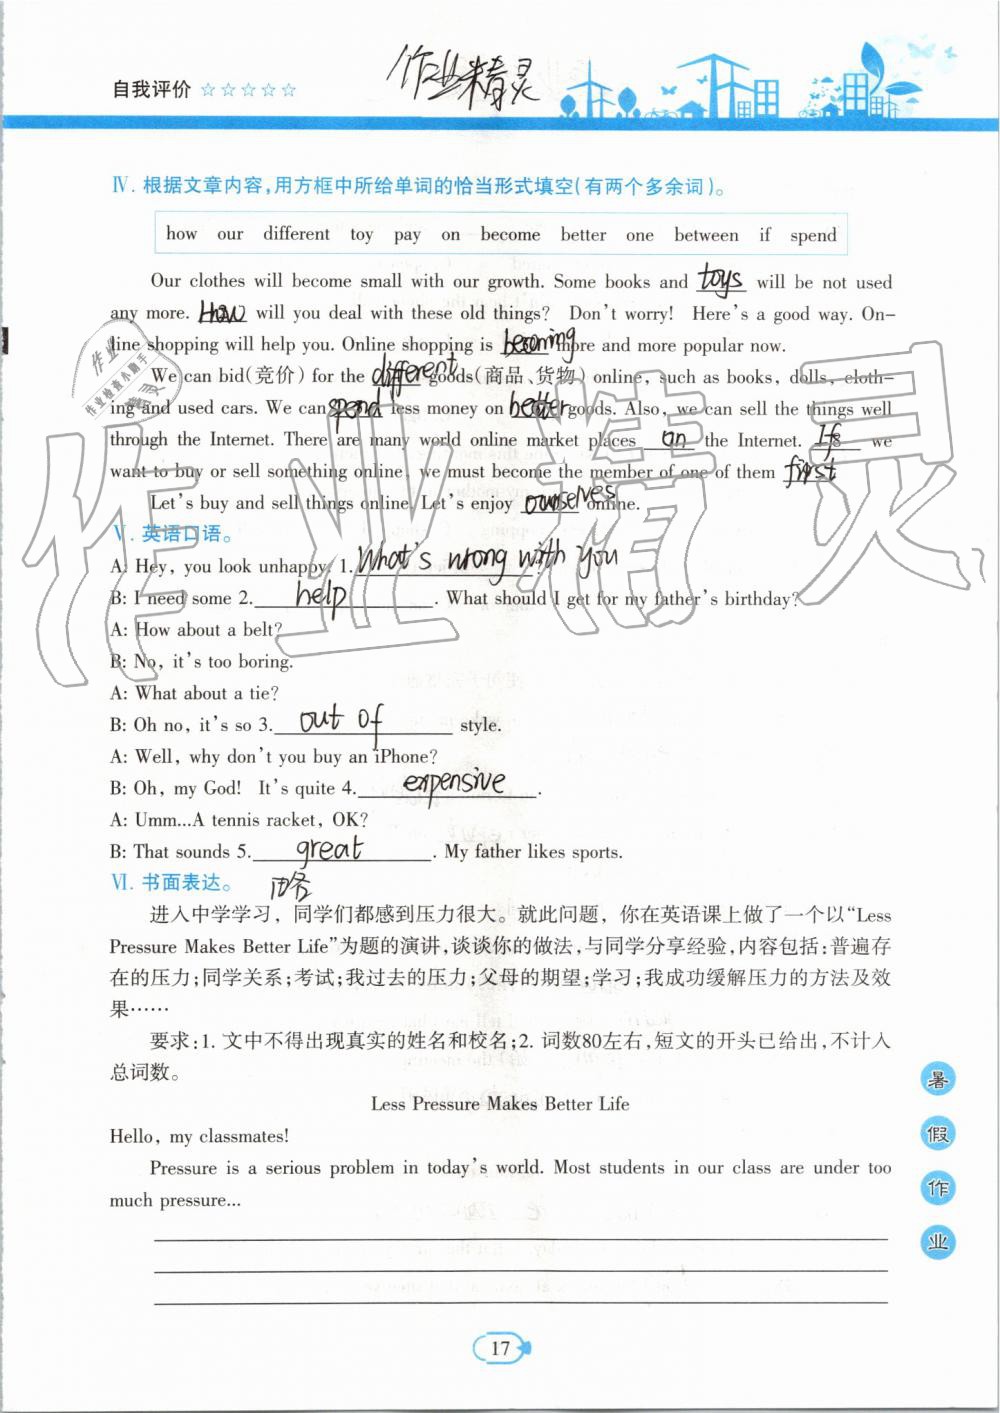 自我评价 ☆☆☆☆☆
作业精灵
Ⅳ. 根据文章内容,用方框中所给单词的恰当形式填空(有两个多余词)。
how our different toy pay on become better one between if spend
Our clothes will become small with our growth. Some books and toys will be not used
any more. How will you deal with these old things? Don't worry! Here's a good way. On-
line shopping will help you. Online shopping is becoming more and more popular now.
We can bid(竞价) for the different goods(商品、货物) online, such as books, dolls, cloth-
ing and used cars. We can spend less money on better goods. Also, we can sell the things well
through the Internet. There are many world online market places on the Internet. If we
want to buy or sell something online, we must become the member of one of them first.
Let's buy and sell things online. Let's enjoy ourselves online.
Ⅴ. 英语口语。
A: Hey, you look unhappy. 1. What's wrong with you?
B: I need some 2. help. What should I get for my father's birthday?
A: How about a belt?
B: No, it's too boring.
A: What about a tie?
B: Oh no, it's so 3. out of style.
A: Well, why don't you buy an iPhone?
B: Oh, my God! It's quite 4. expensive.
A: Umm...A tennis racket, OK?
B: That sounds 5. great. My father likes sports.
Ⅵ. 书面表达。 略
进入中学学习，同学们都感到压力很大。就此问题，你在英语课上做了一个以“Less
Pressure Makes Better Life”为题的演讲,谈谈你的做法,与同学分享经验,内容包括:普遍存
在的压力;同学关系;考试;我过去的压力;父母的期望;学习;我成功缓解压力的方法及效
果……
要求:1. 文中不得出现真实的姓名和校名;2. 词数80左右,短文的开头已给出,不计入
总词数。
Less Pressure Makes Better Life
Hello, my classmates!
Pressure is a serious problem in today's world. Most students in our class are under too
much pressure...
暑
假
作
业
17
作业精灵